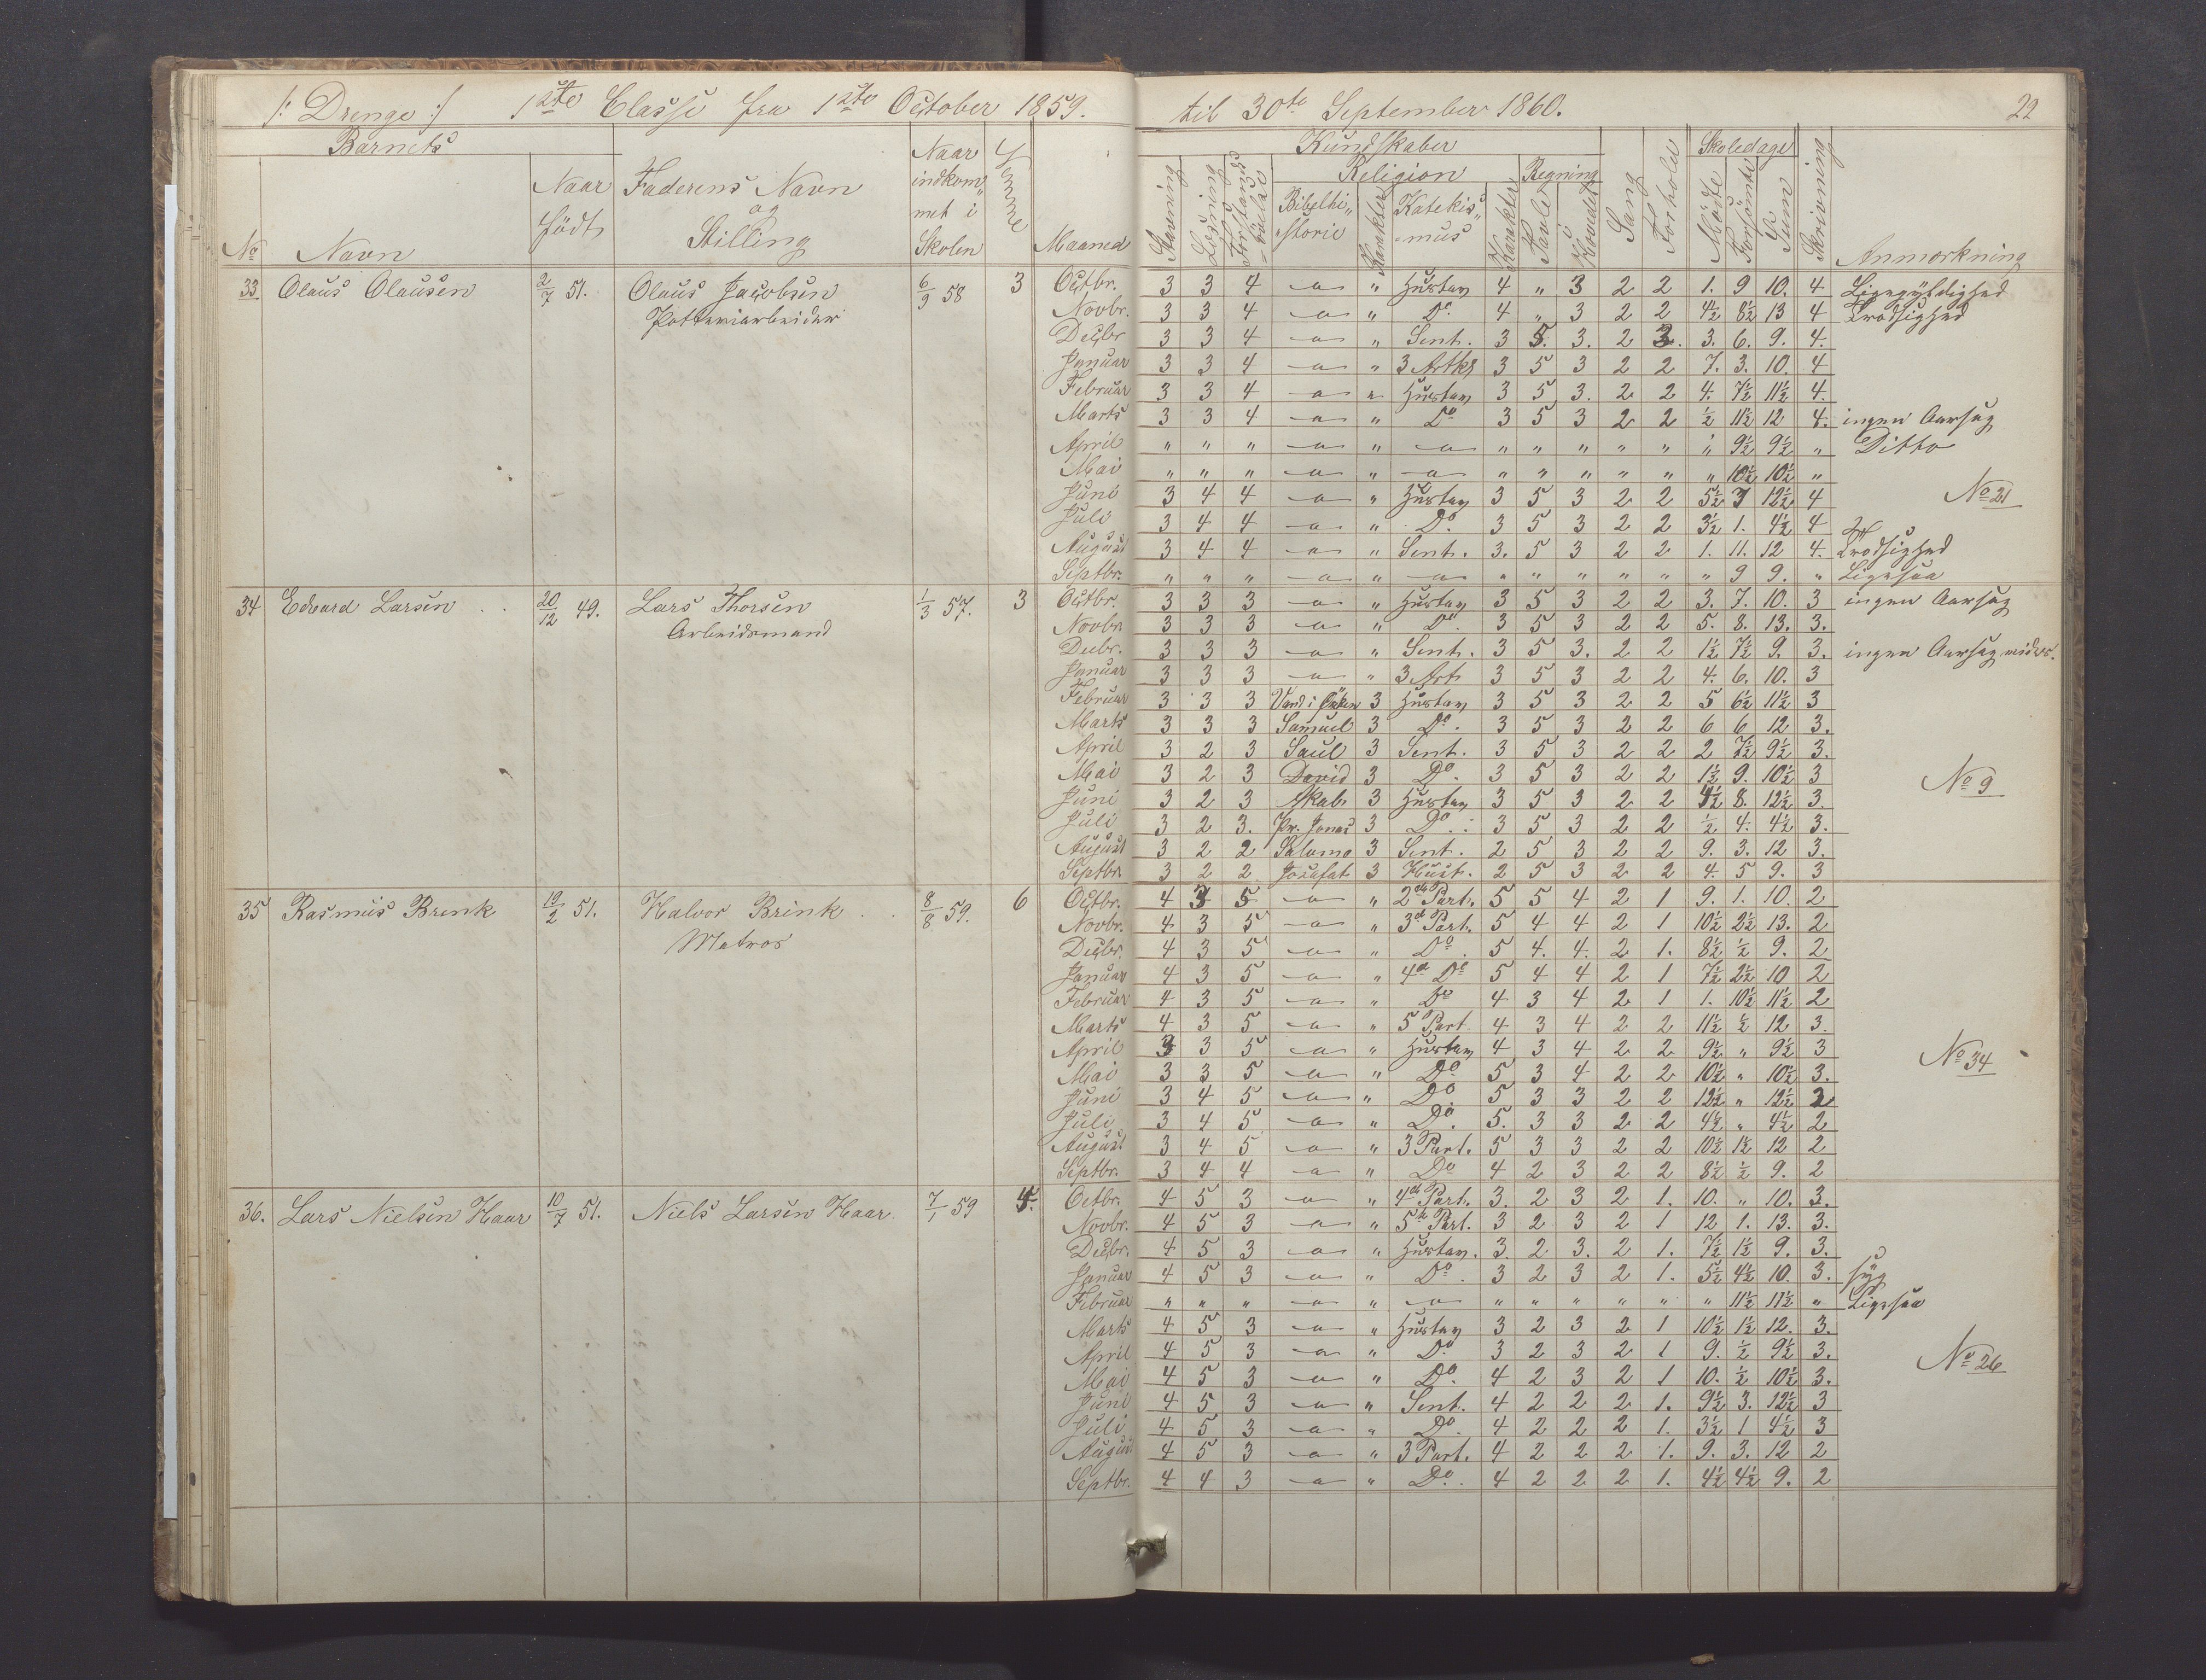 /: Drenge :/ 1ste Classe fra 1ste October 1859. til 30te September 1860. 22
Barnets Naar indkom„ met i Skolen Kundskaber Skoledage
No Navn Naar födt Faderens Navn og Stilling Maaned Stavning Læsning Religion Bibelhi„ storie Karakter Katekis„ mus Karakter Regning Tavle Hovedet Sang Forhold Mødte Forsömte Sum Skrivning Anmærkning
33. Olaus Olausen 2/7 51. Olaus Jacobsen 6/9 58 3 Octbr. 3 3 4 -a- „ Hustav 4 „ 3 2 2 1. 9 10. 4 Ligegyldighed
Potteriarbeider Novbr. 3 3 4 -a- „ Do 4 „ 3 2 2 4½ 8½ 13 4 Trodsighed
Decbr 3 3 4 -a- „ Sent. 3 5. 3. 2 3. 3. 6. 9. 4.
Januar 3 3 4 -a- „ 3 Artkl 3 5 3 2 2 7. 3. 10. 4
Februar 3 3 4 -a- „ Hustav 3 5 3. 2 2 4. 7½ 11½ 4.
Marts 3 3 4 -a- „ Do 3 5 3 2 2 ½ 11½ 12 4. ingen Aarsag
April „ „ „ -a- „ -a- „ „ „ „ „ „ 9½ 9½ „ Ditto
Mai „ „ „ -a- „ -a- „ „ „ „ „ „ 10½ 10½ „
Juni 3 4 4 -a- „ Hustav 3 5 3 2 2 5½ 7 12½ 4 No 21
Juli 3 4 4 -a- „ Do. 3 5 3 2 2 3½ 1. 4½ 4
August 3 4 4 -a- „ Sent. 3. 5 3 2 2 1. 11. 12 4. Trodsighed
Septbr. „ „ „ -a- „ -a- „ „ „ „ „ „ 9 9. „ Ligesaa
34 Edvard Larsen 20/12 49. Lars Thorsen 1/3 57. 3 Octbr. 3 3 3 -a- „ Hustav 3 5 3 2 2 3. 7. 10. 3 ingen Aarsag
Arbeidsmand Novbr 3 3 3 -a- „ Do. 3 5 3 2 2 5. 8. 13. 3.
Decbr. 3 3 3 -a- „ Sent. 3 5 3. 2 2 1½ 7½ 9. 3. ingen Aarsag
Januar 3 3 3 -a- „ 3 Art 3 5 3 2 2 4. 6. 10. 3
Februar 3 3 3 Vand i 3 Hustav 3 5 3 2 2 5 6½ 11½ 3
Marts 3 3 3 Samuel 3 Do. 3 5 3 2 2 6 6 12 3.
April 3 2 3 Saul 3 Sent. 3 5 3 2 2 2 7½ 9½ 3.
Mai 3 2 3 David 3 Do. 3 5 3 2 2 1½ 9. 10½ 3 No 9
Juni 3 2 3 Akab 3 Hustav 3 5 3 2 2 4½ 8. 12½ 3.
Juli 3 2 3. Pr. Jonas 3 Do. 3 5 3 2 2 ½ 4. 4½ 3.
August 3 2 2 Salomo 3 Sent. 2 5 3 2 2 9. 3. 12 3.
Septbr. 3 2 2 Josafat 3 Hust. 2 5 3 2 2 4. 5 9. 3
35 Rasmus Brink 19/2 51. Halvor Brink 8/8 59. 6 Octbr. 4 3 5 -a- „ 2de Part. 5 5 4 2 1 9. 1. 10. 2
Matros Novbr. 4 3 5 -a- „ 3d Part. 5 4 4 2 1 10½ 2½ 13. 2
Decbr. 4 3 5 -a- „ Do. 5 4. 4. 2 1. 8½ ½ 9. 2
Januar 4 3 5 -a- „ 4d Do 5 4 4 2 1 7½ 2½ 10 2
Februar 4 3 5 -a- „ Do 4 3 4 2 1 1. 10½ 11½ 2
Marts 4 3 5 -a- „ 5 Part 4 3 4 2 2 11½ ½ 12 3.
April 3 3 5 -a- „ Hustav 4 3 4 2 2 9½ „ 9½ 3 No 34
Mai 3 3 5 -a- „ Do 5 3 4 2 2 10½ „ 10½ 3.
Juni 3 4 5 -a- „ Do. 5 3 3 2 2 12½ „ 12½ 2
Juli 3 4 5 -a- „ Do. 5. 3 3 2 2 4½ „ 4½ 2
August 3 4 5 -a- „ 3 Part. 5 3 3 2 2 10½ 1½ 12 2
Septbr. 3 4 4 -a- „ Do 4 2 3 2 2 8½ ½ 9. 2
36. Lars Nielsen Haar 10/7 51. Niels Larsen Haar. 7/1 59 4. Octbr. 4 5 3 -a- „ 4de Part. 3. 2 3 2 1. 10. „ 10. 3.
Novbr. 4 5 3 -a- „ 5te Part. 3 2 3 2 1 12 1. 13. 3.
Decbr. 4 5 3 -a- „ Hustav. 3. 2 3. 2 1. 7½ 1½ 9. 3.
Januar 4 5 3 -a- „ Do. 3 2 3 2 1. 5½ 4½ 10. 3. syg
Februar „ „ „ -a- „ -a- „ „ „ „ „ „ 11½ 11½ „ Ligesaa
Marts 4 5 3 -a- „ Hustav 3 2 3 2 1 10½ 1½ 12. 3.
April 4 5 3 -a- „ Do 3 2 3 2 1 9. ½ 9½ 3. No 26
Mai 4 5 3 -a- „ Do. 4 2 3 2 1 10. ½ 10½ 3.
Juni 4 5 3 -a- „ Sent. 4 2 2 2 1. 9½ 3. 12½ 3
Juli 4 5 3 -a- „ Do. 4 2 2 2 1. 3½ 1 4½ 3
August 4 5 3 -a- „ 3 Part. 4 2 2 2 1. 9. 3. 12 2
Septbr. 4 4 3 -a- „ Do. 4 2 2 2 1. 4½ 4½ 9. 2